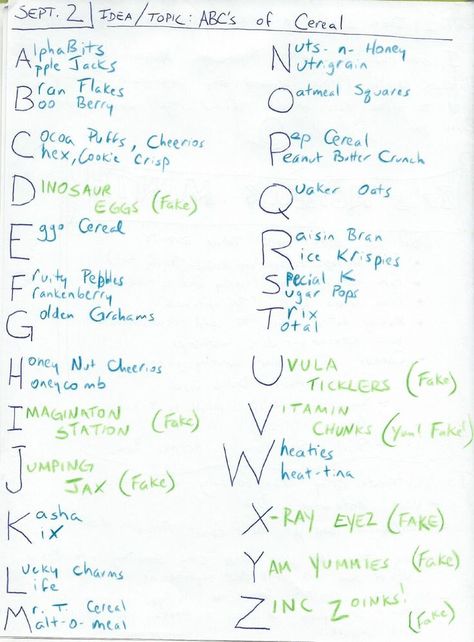 SEPT. 2 IDEA/TOPIC: ABC's of Cereal
AlphaBits
Apple Jacks
Bran Flakes
Boo Berry
Cocoa Puffs, Cheerios
Chex, Cookie Crisp
DINOSAUR
EGGS (Fake)
Eggo Cereal
Fruity Pebbles
Frankenberry
Golden Grahams
Honey Nut Cheerios
Honeycomb
IMAGINATON
STATION (Fake)
JUMPING
JAX (Fake)
Kasha
Kix
Lucky Charms
Life
Mr. T. Cereal
Malt-o-meal
Nuts-n-Honey
Nutrigrain
Oatmeal Squares
Pep Cereal
Peanut Butter Crunch
Quaker Oats
Raisin Bran
Rice Krispies
Special K
Sugar Pops
Trix
Total
UVULA
TICKLERS (Fake)
VITAMIN
CHUNKS (Yum! Fake!)
Wheaties
Wheat-tina
X-RAY EYEZ (FAKE)
YAM YUMMIES (Fake)
ZINC ZOINKS!
(Fake)